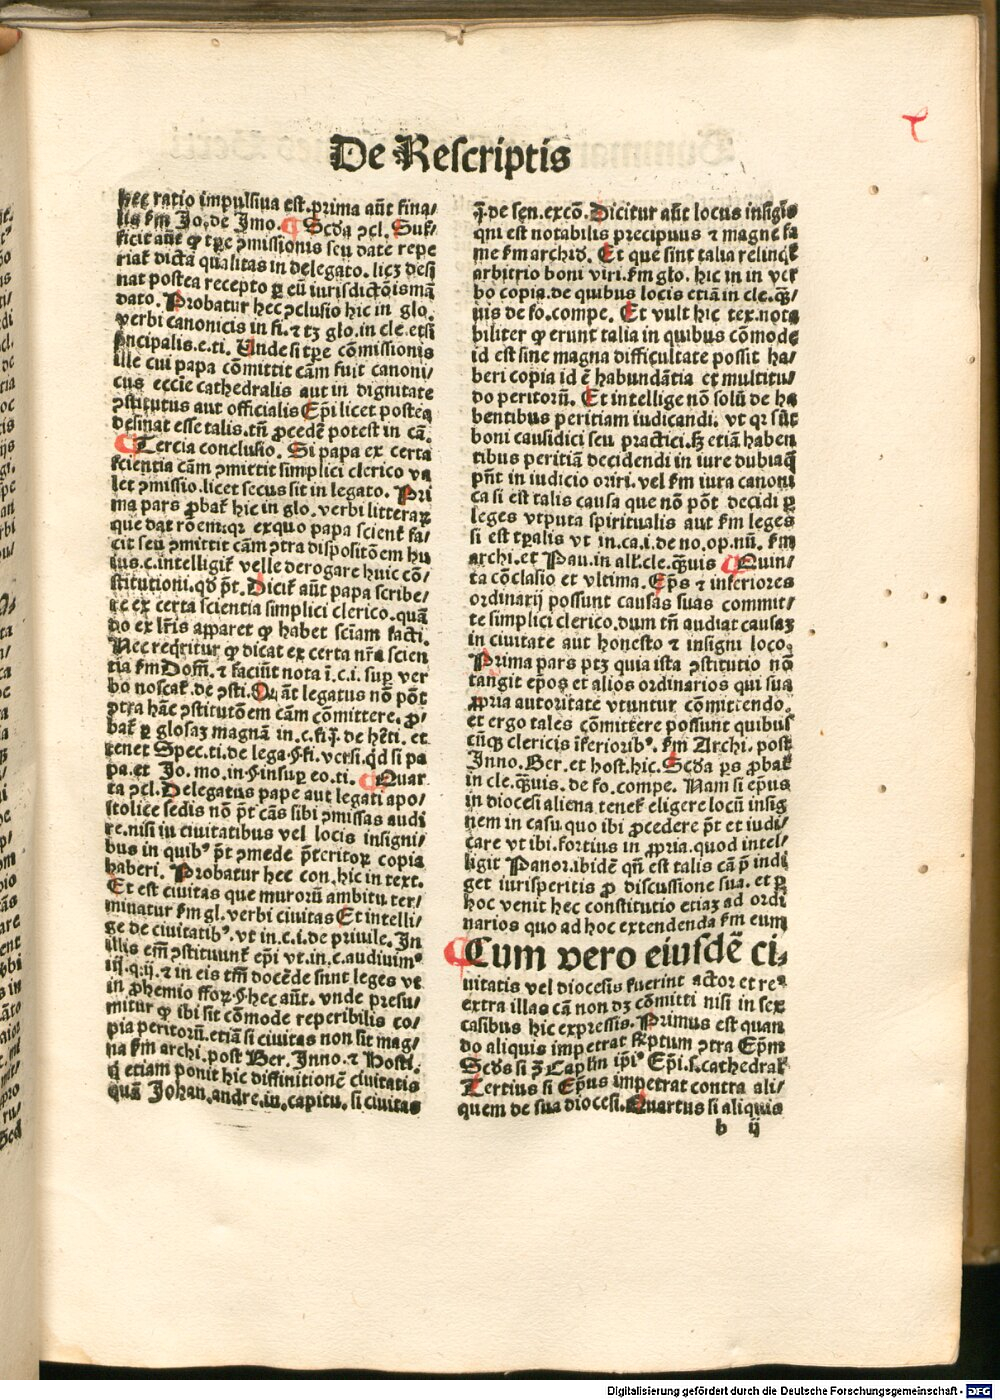 De Rescriptis
hec ratio impulsiua est. prima aūt fina/
lis fm Jo. de Imo. ¶ Scďa ↄcl. Suf/
ficit aūt ꝙ tꝑe ↄmissionis seu date repe
riaƭ dictā qualitas in delegato. licꝫ desi
nat postea recepto ꝑ eū iurisdictōis mā
dato. Probatur hec ↄclusio hic in glo.
verbi canonicis in fi. ⁊ tꝫ glo. in cle. etsi
principalis. e. ti. Unde si tꝑe cōmissionis
ille cui papa cōmittit cām fuit canoni/
cus eccie cathedralis aut in dignitate
ↄstitutus aut officialis Epī licet postea
desinat esse talis. tn̄ ꝓcedē potest in cā.
¶ Tercia conclusio. Si papa ex certa
scientia cām ↄmittit simplici clerico va
let ↄmissio. licet secus sit in legato. Pri
ma pars ꝓbaƭ hic in glo. verbi litteraꝝ
que dat rōem: qꝛ exquo papa scienƭ fa/
cit seu ↄmittit cām ↄtra dispositōem hu
ius. c. intelligiƭ velle derogare huic cō/
stitutioni. qď pt̄. Diciƭ aūt papa scribe/
re ex certa scientia simplici clerico. quā
do ex lr̄is apparet ꝙ habet sciam facti.
Nec reqͥritur ꝙ dicat ex certa nr̄a scien
tia fm Dom̄. ⁊ faciūt nota ī. c. i. suꝑ ver
bo noscaƭ. de ↄsti. Qꝛ aūt legatus nō pōt
ↄtra hāc ↄstitutōem cām cōmittere. ꝓ/
baƭ ꝑ glosaꝫ magnā in. c. fi. ꝗ̄. de heti. et
tenet Spec. ti. de lega. §. fi. versi. qď si pa
pa. et Jo. mo. in. § insuꝑ eo. ti. ¶ Quar
ta ↄcl. Delegatus pape aut legati apo/
stolice sedis nō pt̄ cās sibi ↄmissas audi
re. nisi in ciuitatibus vel locis insigni/
bus in quibꝰ pt̄ ↄmede pr̄teritoꝝ copia
haberi. Probatur hec con. hic in text.
Et est ciuitas que muroꝝ ambitu ter/
minatur fm gl. verbi ciuitas Et intelli/
ge de ciuitatibꝰ. vt in. c. i. de priuile. In
illis em̄ ↄstituunƭ epi vt. in. c. audiuimꝰ
iij. q. ij. ⁊ in eis tm̄ docēde sunt leges vt
in ꝓhemio ffoꝝ. § hec aūt. vnde presu/
mitur ꝙ ibi sit cōmode reperibilis co/
pia peritorū. etiā si ciuitas non sit mag/
na fm archi. post Ber. Inno. ⁊ Hosti.
ꝗ̄ etiam ponit hic diffinitionē ciuitatis
quā Johan. andre. in. capitu. si ciuitas
ꝗ̄. de sen. excō. Dicitur aūt locus insigis
qui est notabilis precipuus ⁊ magne fa
me fm archiď. Et que sint talia relinqͥƭ
arbitrio boni viri. fm glo. hic in in ver
bo copia. de quibus locis etiā in cle. qͣ/
uis de fo. compe. Et vult hic tex. nota
biliter ꝙ erunt talia in quibus cōmode
id est sine magna difficultate possit ha/
beri copia id ē habundātia et multitu/
do peritorū. Et intellige nō solū de ha
bentibus peritiam iudicandi. vt qꝛ sūt
boni causidici seu practici. sꝫ etiā haben
tibus peritiā decidendi in iure dubia qͣ
pn̄t in iudicio oriri. vel fm iura canoni
ca si est talis causa que nō pōt decidi ꝑ
leges vtputa spiritualis aut fm leges
si est tꝑalis vt in. ca. i. de no. op. nū. fm
archi. et Pau. in all. cle. qͣuis ¶ Quin/
ta cōclasio et vltima. Eps ⁊ inferiores
ordinarij possunt causas suas commit/
te simplici clerico. dum tn̄ audiat causaꝫ
in ciuitate aut honesto ⁊ insigni loco.
Prima pars ptꝫ quia ista ↄstitutio nō
tangit ep̄os et alios ordinarios qui sua
ꝓpria autoritate vtuntur cōmittendo.
et ergo tales cōmittere possunt quibus
cūqꝫ clericis īferioribꝰ. fm Archi. post
Inno. Ber. et host. hic. Scďa ps ꝓbaƭ
in cle. qͣuis. de fo. compe. Nam si ep̄us
in diocesi aliena teneƭ eligere locū insig
nem in casu quo ibi ꝓcedere pt̄ et iudi/
care vt ibi. fortius in ꝓpria. quod intel/
ligit Panor. ibidē qn̄ est talis cā ꝓ indi
get iurisperitis ꝓ discussione sua. et ꝑ
hoc venit hec constitutio etiaꝫ ad ordi
narios quo ad hoc extendenda fm eum
¶ Cum vero eiusdē ci/
uitatis vel diocesis fuerint actor et re°
extra illas cān non dꝫ cōmitti nisi in sex
casibus hic expressis. Primus est quan
do aliquis impetrat scriptum ↄtra Epm̄
Scďs si ꝫ Caplm ipī⁹ Epī. s. cathedraƭ
Tertius si Epūs impetrat contra ali/
quem de sua diocesi. Quartus si aliquis
b ij